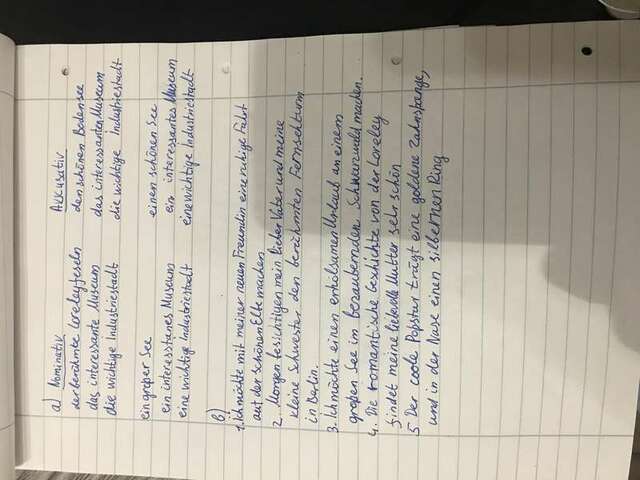 a) Nominativ Akkusativ
der berühmte Loreleyfelseln den schönen Bodensee
das interessante Museum das interessantes Museum
die wichtige Industriestadt die wichtige Industriestadt
ein großer See einen schönen See
ein interesstanes Museum ein interessantes Museum
eine wichtig Industriestadt eine wichtige Industriestadt
b)
1. Ich möchte mit meiner neuen Freundin eine ruhige Fahrt
auf der schönen Elbe machen
2. Morgen besichtigen mein lieber Vater und meine
kleine Schwester den berühmten Fernsehturm
in Berlin.
3. Ich möchte einen erholsamen Urlaub an einem
großen See im bezaubernden Schwarzwald machen.
4. Die romantische Geschichte von der Loreley
findet meine liebevolle Mutter sehr schön
5 Der coole Popstar trägt eine goldene Zahnspange,
und in der Nase einen silbernen Ring